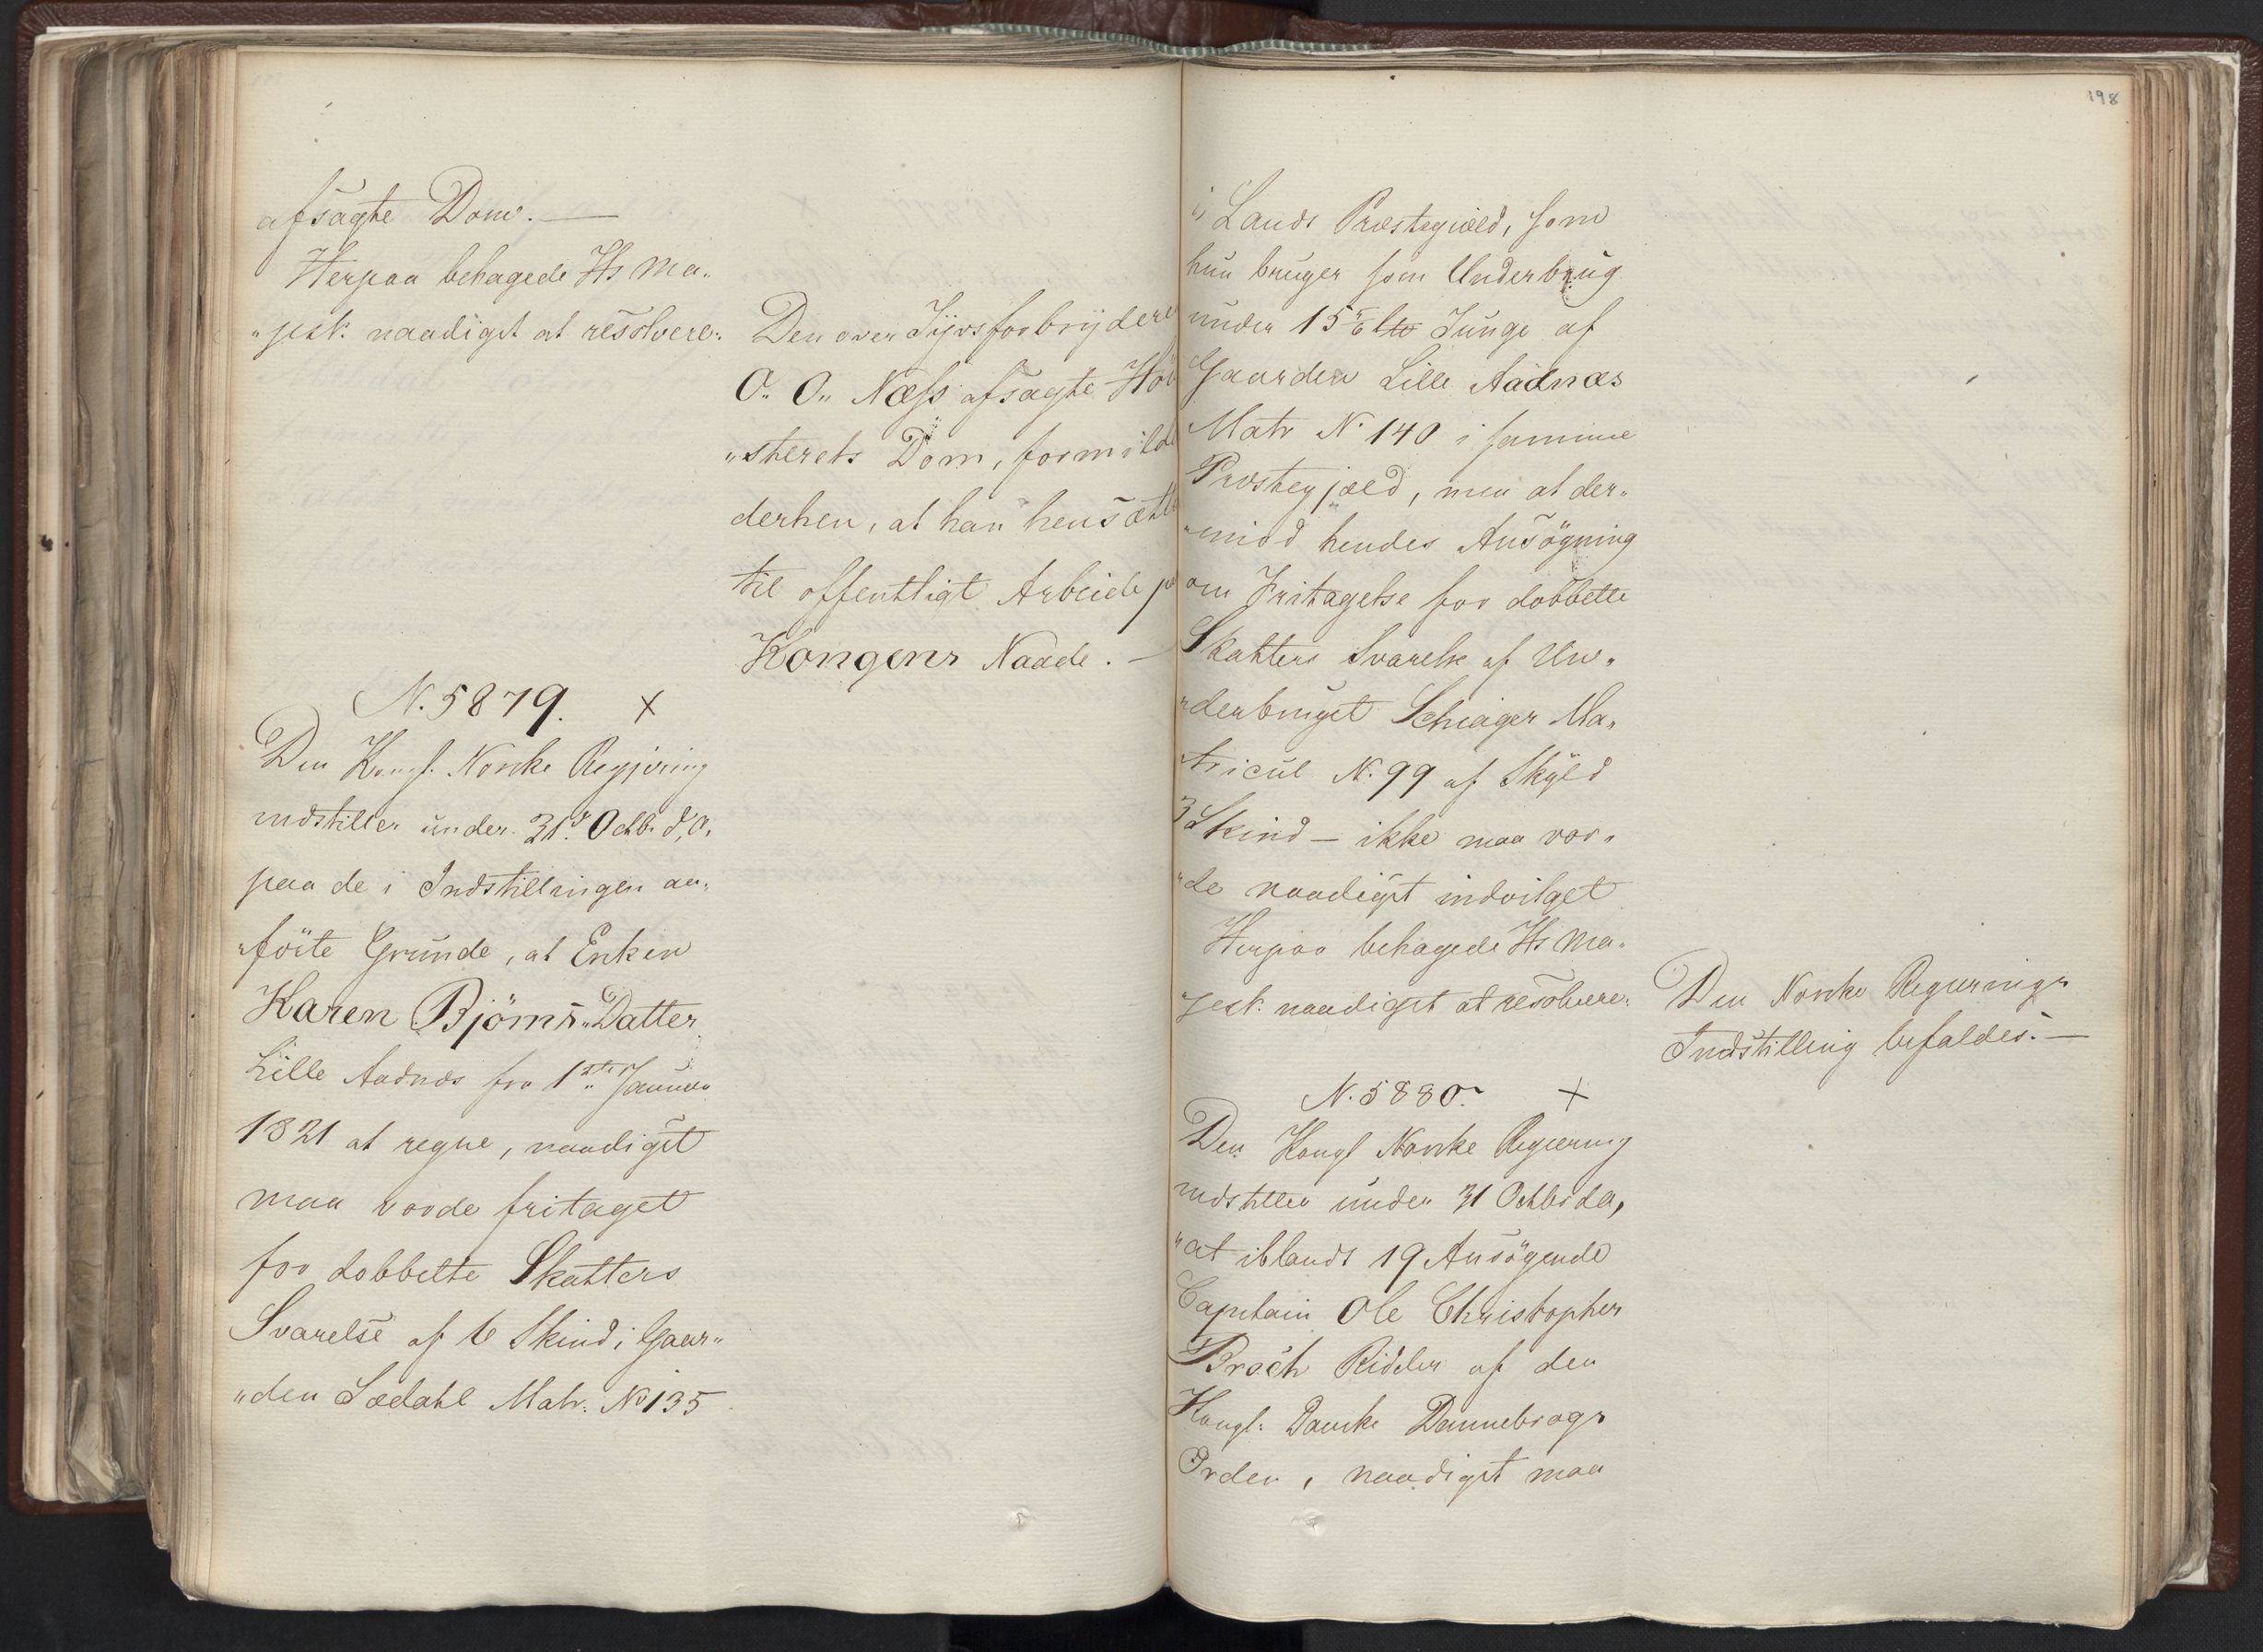 afsagte Dom. —
Herpaa behagede Hs Ma„
„jest. naadigst at resolvere:
Den over Tyvsforbryderen
O. O. Næss afsagte Höi
„sterets Dom, formilde
derhen, at han hensætte
til offentligt Arbeide pa
Kongens Naade. —
N. 5879. X
Den Kongl. Norske Regjering
indstiller under 31te Octbr d. a.
paa de i Indstillingen an„
„förte Grunde, at Enken
Karen Björns„Datter
Lille Aadnæs fra 1ste Januar
1821 at regne, naadigst
maa vorde fritaget
for dobbelte Skatters
Svarelse af 6 Skind i Gaar„
„den Sædahl Matr: No 135
198
i Lands Præstegiæld, som
hun bruger som Underbrug
under 15 5/6 Tunge af
Gaarden Lille Aadnæs
Matr N. 140 i samme
Præstegjæld, men at der„
„imod hendes Ansögning
om Fritagelse for dobbelte
Skatters Svarelse af Un„
„derbruget Schiager Ma„
tricul N. 99 af Skyld
3 Skind — ikke maa vor„
„de naadigst indvilget
Herpaa behagede Hs Ma„
jest. naadigst at resolvere:
Den Norske Regierings
Indstilling befaldes. —
N. 5880. X
Den Kongl Norske Regiering
indstiller under 31 Octbr d a,
„at iblandt 19 Ansögende
Capitain Ole Christopher
Broch Ridder af den
Kongl: Danske Dannebrogs
Orden, naadigst maa